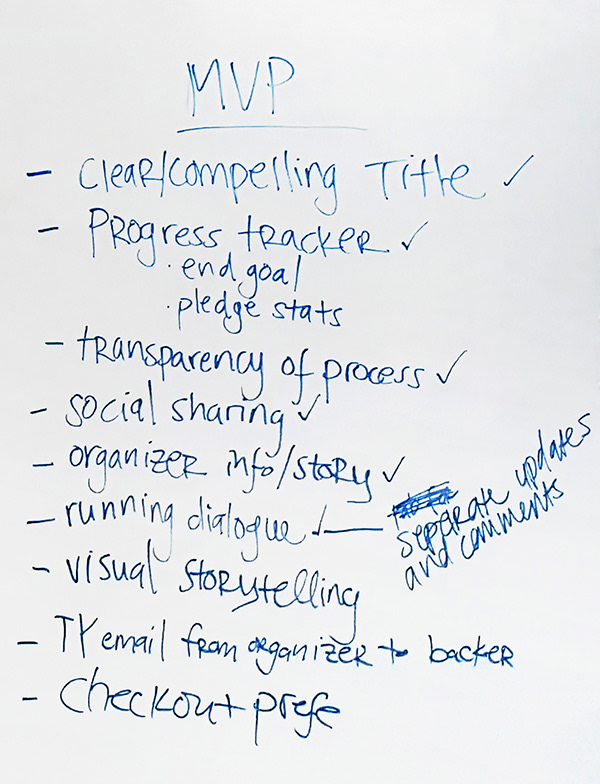 MVP
- Clear/compelling Title ✓
- Progress tracker ✓
· end goal
· pledge stats
- transparency of process ✓
- social sharing ✓
- organizer info/story ✓
- running dialogue ✓—
separate updates
and comments
- visual storytelling
- TY email from organizer to backer
- Checkout prefe